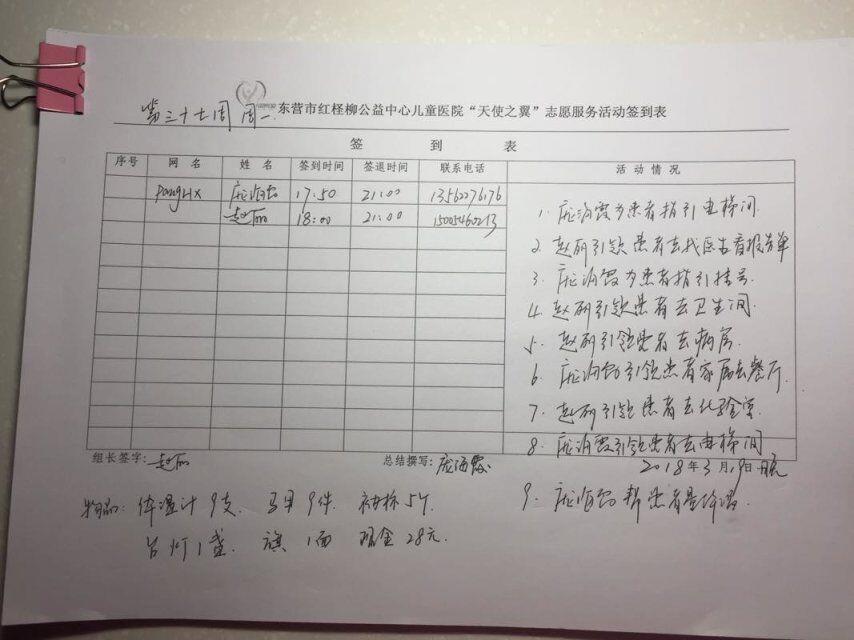 第三十七周 周一
东营市红柽柳公益中心儿童医院“天使之翼”志愿服务活动签到表
签 到 表
序号 网 名 姓 名 签到时间 签退时间 联系电话 活 动 情 况
panglix 庞海霞 17:50 21:00 13562276176
赵丽 18:00 21:00 15005460213
1. 庞海霞为患者指引电梯间
2. 赵丽引领患者去找医生看报告单
3. 庞海霞为患者指引挂号
4. 赵丽引领患者去卫生间.
5. 赵丽引领患者去病房.
6. 庞海霞引领患者家属去餐厅.
7. 赵丽引领患者去化验室
8. 庞海霞引领患者去电梯间
组长签字: 赵丽 总结撰写: 庞海霞 2018年3月19日
物品: 体温计9支. 马甲9件. 袖标5个 9. 庞海霞帮患者量体温.
台灯1盏. 旗1面 现金28元.